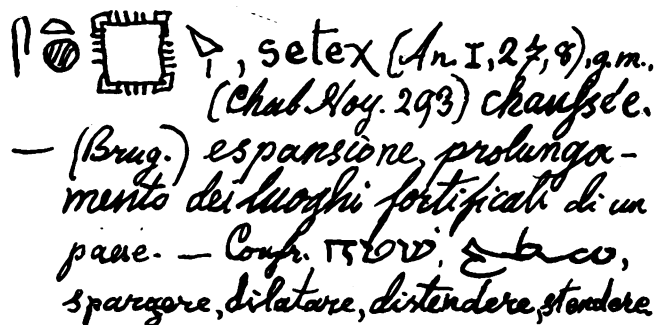 , setex (An. I, 27, 8), g.m.,
(Chab. Voy. 293) chaussée.
— (Brug.) espansione, prolunga-
mento dei luoghi fortificati di un
paese. — Confr. שטח, سطح,
spargere, dilatare, distendere, stendere.